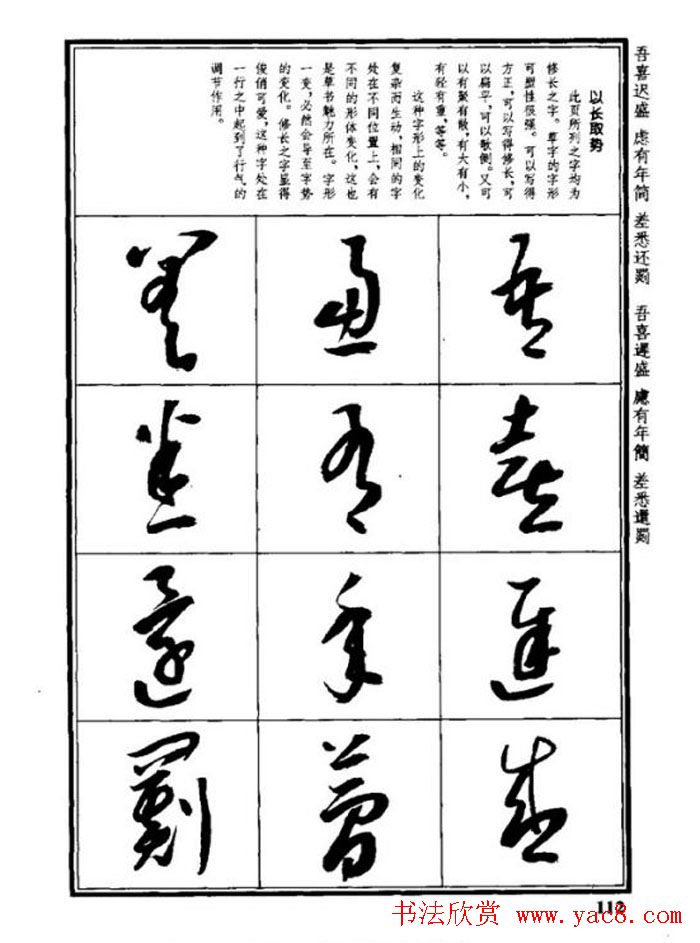 吾喜迟盛 虑有年简 差悉还罚 吾喜遲盛 慮有年簡 差悉還罰
以长取势
此页所列之字均为
修长之字。草字的字形
可塑性很强。可以写得
方正,可以写得修长,可
以扁平,可以欹侧。又可
以有聚有散,有大有小,
有轻有重,等等。
这种字形上的变化
复杂而生动,相同的字
处在不同位置上,会有
不同的形体变化,这也
是草书魅力所在。字形
一变,必然会导至字势
的变化。修长之字显得
俊俏可爱,这种字处在
一行之中起到了行气的
调节作用。
吾
喜
遲
盛
慮
有
年
簡
差
悉
還
罰
112
书法欣赏 www.yac8.com